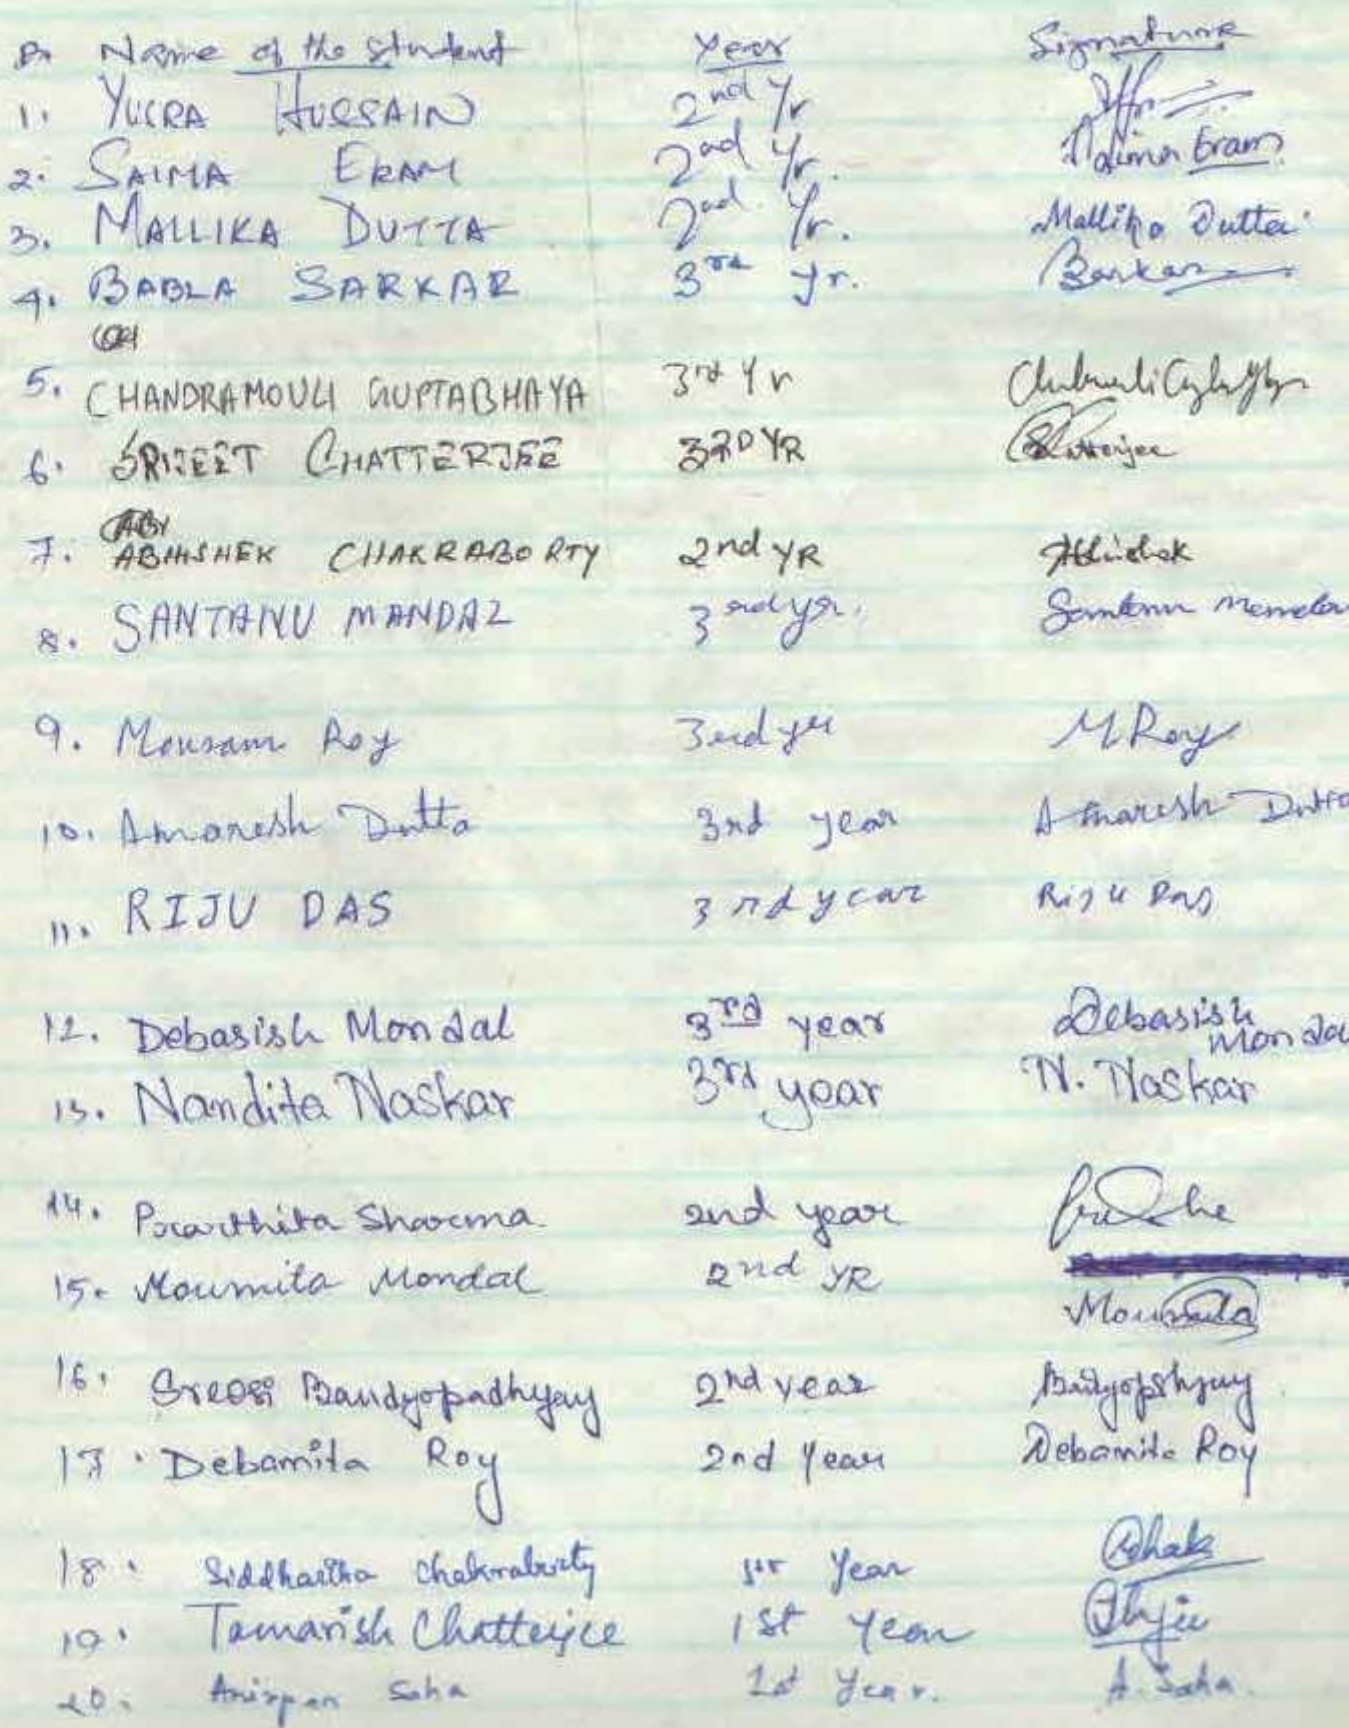 Name of the Student Year Signature
1. YUSRA HUSSAIN 2nd Yr
2. SAIMA EKRAM 2nd Yr. Saima Ekram
3. MALLIKA DUTTA 2nd. Yr. Mallika Dutta
4. BABLA SARKAR 3rd yr. Sarkar
5. CHANDRAMOULI GUPTABHAYA 3rd Yr
6. SRIJEET CHATTERJEE 3RD YR Chatterjee
7. ABHISHEK CHAKRABORTY 2nd YR Abhishek
8. SANTANU MANDAL 3rd yr. Santanu
9. Mousam Roy 3rd yr M Roy
10. Amaresh Dutta 3rd year Amaresh Dutta
11. RIJU DAS 3rd year Riju Das
12. Debasish Mondal 3rd year Debasish Mondal
13. Nandita Naskar 3rd year N. Naskar
14. Prarthita Sharma 2nd year
15. Moumita Mondal 2nd YR
Moumita
16. Sreosi Bandyopadhyay 2nd year Bandyopadhyay
17. Debamita Roy 2nd Year Debamita Roy
18. Siddhartha Chakraborty 1st Year
19. Tamarish Chatterjee 1st Year
20. Anirpan Saha 1st Year. A. Saha.